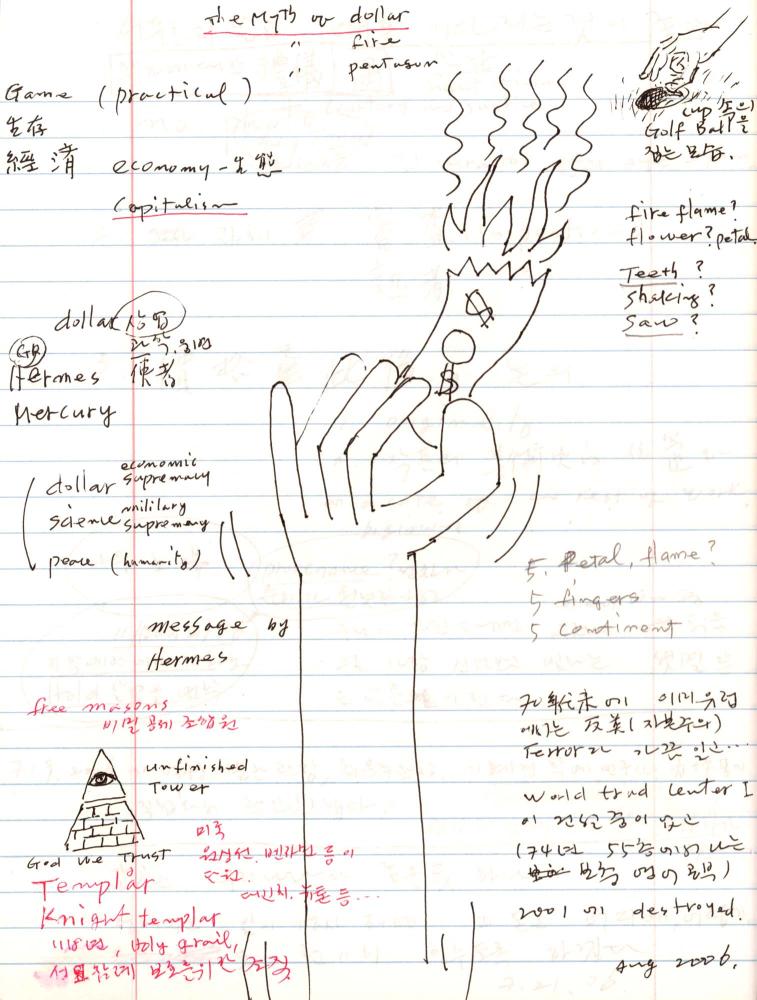 The Myth of dollar
" fire
" pentagon
Game (practical)
生存
經済 economy - 生態
Capitalism
cup 속의
Golf Ball을
집는 모습.
fire flame?
flower? petal.
Teeth?
shaking?
Saw?
dollar 상업
과학, 웅변
GR
Hermes 使者
Mercury
dollar economic supremacy
science military supremacy
peace (humanity)
$
$
5. Petal, flame?
5 fingers
5 continent
message by
Hermes
free masons
비밀 공제 조합원
unfinished
Tower
God we Trust
미국
워싱턴, 벤라민 등이
단원.
다빈치, 뉴톤 등...
Templar
Knight templar
1118년, holy grail,
성묘 순례 보호를 위한 조직
70年代末에 이미 유럽
에서는 反美 (자본주의)
Terror가 가끔 있고...
World trad Center I
이 건설 중이 었고
(74년 55층에서 나는
보측 명어 로부)
2001 에 destroyed.
Aug 2006.